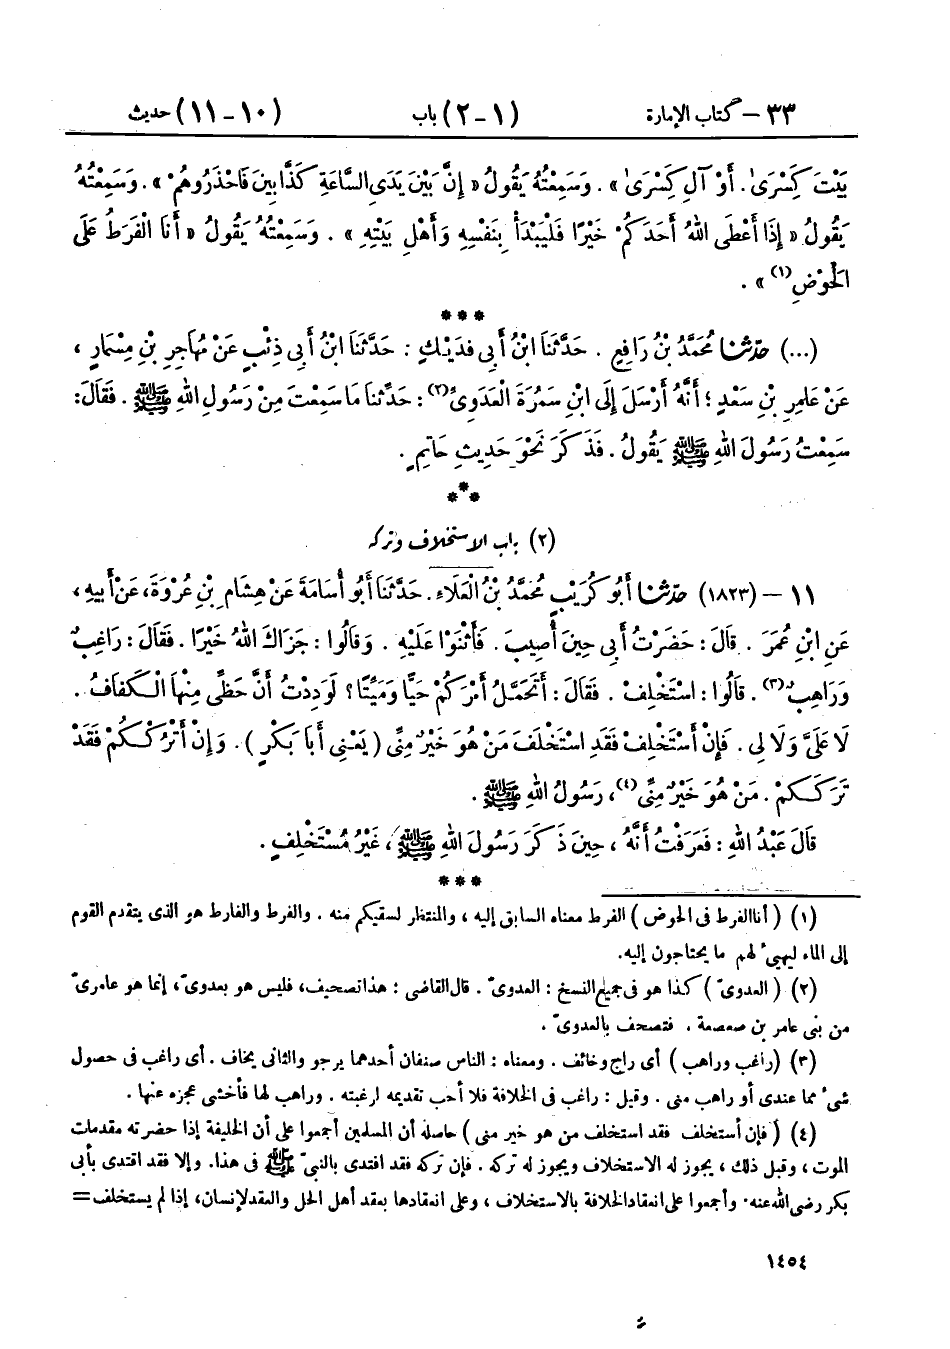 ٣٣ – كتاب الإمارة (١-٢) باب (١٠-١١) حديث
بَيْتَ كِسْرَىٰ. أَوْ آلِ كِسْرَىٰ » . وَسَمِعْتُهُ يَقُولُ « إِنَّ بَيْنَ يَدَىِ السَّاعَةِ كَذَّابِينَ فَاحْذَرُوهُمْ » . وَسَمِعْتُهُ
يَقُولُ « إِذَا أَعْطَى اللهُ أَحَدَكُمْ خَيْرًا فَلْيَبْدَأْ بِنَفْسِهِ وَأَهْلِ بَيْتِهِ » . وَسَمِعْتُهُ يَقُولُ « أَنَا الْفَرَطُ عَلَى
الْحَوْضِ(١) » .
***
(...) حَدَّثَنَا مُحَمَّدُ بْنُ رَافِعٍ . حَدَّثَنَا ابْنُ أَبِى فُدَيْكٍ : حَدَّثَنَا ابْنُ أَبِى ذِئْبٍ عَنْ مُهَاجِرِ بْنِ مِسْمَارٍ ،
عَنْ عَامِرِ بْنِ سَعْدٍ ؛ أَنَّهُ أَرْسَلَ إِلَى ابْنِ سَمُرَةَ الْعَدَوِىِّ(٢) : حَدِّثْنَا مَا سَمِعْتَ مِنْ رَسُولِ اللهِ ﷺ . فَقَالَ:
سَمِعْتُ رَسُولَ اللهِ ﷺ يَقُولُ . فَذَكَرَ نَحْوَ حَدِيثِ حَاتِمٍ .
***
(٢) باب الاستخلاف وتركه
١١ – (١٨٢٣) حَدَّثَنَا أَبُو كُرَيْبٍ مُحَمَّدُ بْنُ الْعَلَاءِ. حَدَّثَنَا أَبُو أُسَامَةَ عَنْ هِشَامِ بْنِ عُرْوَةَ، عَنْ أَبِيهِ ،
عَنِ ابْنِ عُمَرَ . قَالَ : حَضَرْتُ أَبِى حِينَ أُصِيبَ . فَأَثْنَوْا عَلَيْهِ . وَقَالُوا : جَزَاكَ اللهُ خَيْرًا . فَقَالَ : رَاغِبٌ
وَرَاهِبٌ(٣) . قَالُوا : اسْتَخْلِفْ . فَقَالَ : أَتَحَمَّلُ أَمْرَكُمْ حَيًّا وَمَيِّتًا ؟ لَوَدِدْتُ أَنَّ حَظِّى مِنْهَا الْكَفَافُ .
لَا عَلَىَّ وَلَا لِى . فَإِنْ أَسْتَخْلِفْ فَقَدِ اسْتَخْلَفَ مَنْ هُوَ خَيْرٌ مِنِّى ( يَعْنِى أَبَا بَكْرٍ ) . وَإِنْ أَتْرُكْكُمْ فَقَدْ
تَرَكَكُمْ . مَنْ هُوَ خَيْرٌ مِنِّى(٤) ، رَسُولُ اللهِ ﷺ .
قَالَ عَبْدُ اللهِ : فَعَرَفْتُ أَنَّهُ ، حِينَ ذَكَرَ رَسُولَ اللهِ ﷺ ، غَيْرُ مُسْتَخْلِفٍ .
***
(١) ( أنا الفرط فى الحوض ) الفرط معناه السابق إليه ، والمنتظر لسقيكم منه . والفرط والفارط هو الذى يتقدم القوم
إلى الماء ليهيئ لهم ما يحتاجون إليه.
(٢) ( العدوىّ ) كذا هو فى جميع النسخ : العدوىّ . قال القاضى : هذا تصحيف، فليس هو بعدوىّ ، إنما هو عامرىّ
من بنى عامر بن صعصعة ، فتصحف بالعدوىّ .
(٣) ( راغب وراهب ) أى راج وخائف . ومعناه : الناس صنفان أحدهما يرجو والثانى يخاف . أى راغب فى حصول
شىء مما عندى أو راهب منى . وقيل : راغب فى الخلافة فلا أحب تقديمه لرغبته . وراهب لها فأخشى عجزه عنها .
(٤) ( فإن أستخلف فقد استخلف من هو خير منى ) حاصله أن المسلمين أجمعوا على أن الخليفة إذا حضرته مقدمات
الموت ، وقبل ذلك ، يجوز له الاستخلاف ويجوز له تركه . فإن تركه فقد اقتدى بالنبىّ ﷺ فى هذا. وإلا فقد اقتدى بأبى
بكر رضى الله عنه . وأجمعوا على انعقاد الخلافة بالاستخلاف ، وعلى انعقادها بعقد أهل الحل والعقد لإنسان، إذا لم يستخلف=
١٤٥٤